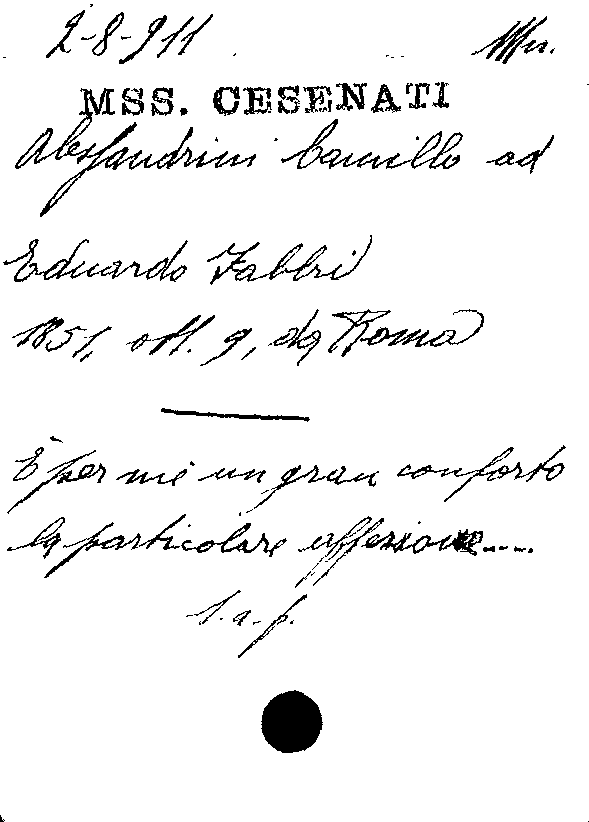 2-8-911
MSS. CESENATI
Alessandrini Camillo ad
Eduardo Fabbri
1851, ott. 9, da Roma
È per me un gran conforto
la particolare affezione....
l. a. f.